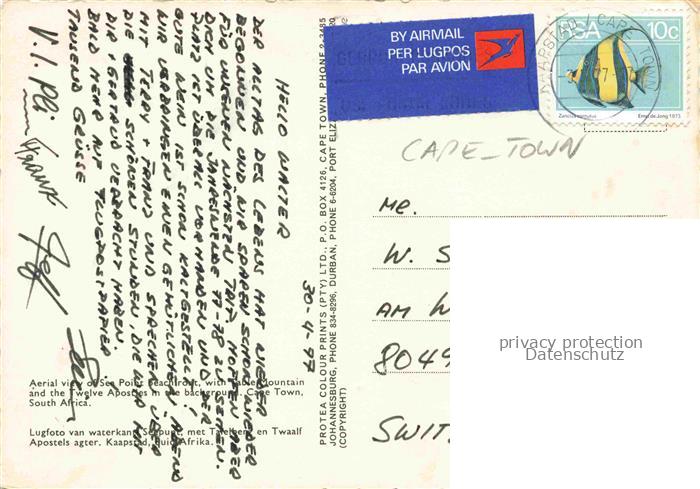 HELLO WALTER
DER ALLTAG DES LEBENS HAT WIEDER
BEGONNEN UND WIR SPAREN SCHON WIEDER
FÜR UNSEREN NÄCHSTEN TRIP. HOFFEN ABER
DICH UM DIE JAHRESWENDE 77-78 ZU SEHEN.
PLATZ IST ÜBERALL VORHANDEN UND DER
GUTE WEIN IST SCHON KALTGESTELLT!
WIR VERBRINGEN EINEN GEMÜTLICHEN ABEND
MIT TERRY + TRAND UND SPRECHEN ÜBER
DIE SCHÖNEN STUNDEN, DIE WIR MIT
DIR + GERTRUD VERBRACHT HABEN.
BALD MEHR AUF FLUGPOSTPAPIER
TAUSEND GRÜSSE
V. I. Pli
30-4-77
PROTEA COLOUR PRINTS (PTY) LTD., P.O. BOX 4126, CAPE TOWN, PHONE
JOHANNESBURG, PHONE 834-8296, DURBAN, PHONE 6-6204, PORT ELIZ
(COPYRIGHT)
Aerial view of Sea Point beachfront, with Table Mountain
and the Twelve Apostles in the background. Cape Town,
South Africa.
Lugfoto van waterkant Seepunt, met Tafelberg en Twaalf
Apostels agter. Kaapstad, Suid-Afrika.
BY AIRMAIL
PER LUGPOS
PAR AVION
KAAPSTAD / CAPE TOWN
RSA 10c
Zanclus cornutus
Ernst de Jong 1973
CAPE-TOWN
MR.
W. S
AM W
8049
SWIT
privacy protection
Datenschutz